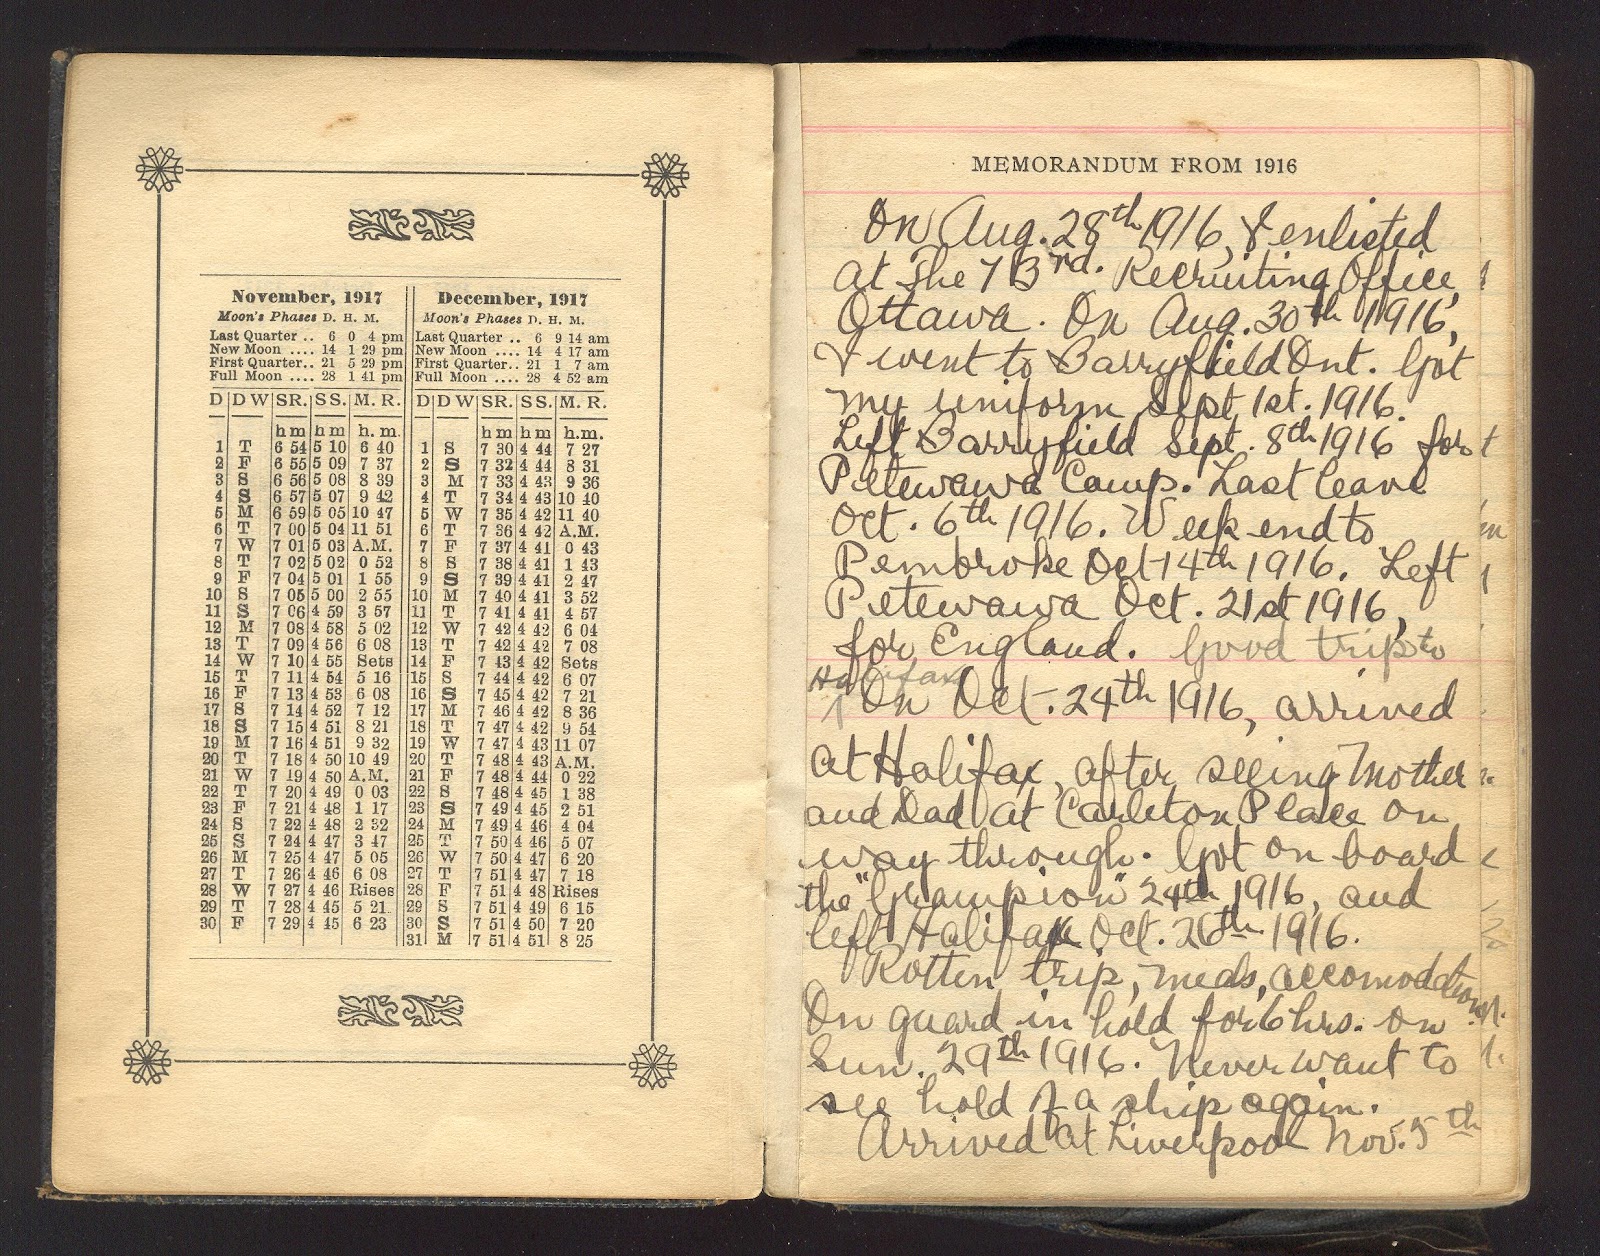 November, 1917
Moon's Phases D. H. M.
Last Quarter .. 6 0 4 pm
New Moon .... 14 1 29 pm
First Quarter.. 21 5 29 pm
Full Moon .... 28 1 41 pm
D D W SR. S S. M. R.
h m h m h. m.
1 T 6 54 5 10 6 40
2 F 6 55 5 09 7 37
3 S 6 56 5 08 8 39
4 S 6 57 5 07 9 42
5 M 6 59 5 05 10 47
6 T 7 00 5 04 11 51
7 W 7 01 5 03 A.M.
8 T 7 02 5 02 0 52
9 F 7 04 5 01 1 55
10 S 7 05 5 00 2 55
11 S 7 06 4 59 3 57
12 M 7 08 4 58 5 02
13 T 7 09 4 56 6 08
14 W 7 10 4 55 Sets
15 T 7 11 4 54 5 16
16 F 7 13 4 53 6 08
17 S 7 14 4 52 7 12
18 S 7 15 4 51 8 21
19 M 7 16 4 51 9 32
20 T 7 18 4 50 10 49
21 W 7 19 4 50 A.M.
22 T 7 20 4 49 0 03
23 F 7 21 4 48 1 17
24 S 7 22 4 48 2 32
25 S 7 24 4 47 3 47
26 M 7 25 4 47 5 05
27 T 7 26 4 46 6 08
28 W 7 27 4 46 Rises
29 T 7 28 4 45 5 21
30 F 7 29 4 45 6 23
December, 1917
Moon's Phases D. H. M.
Last Quarter .. 6 9 14 am
New Moon .... 14 4 17 am
First Quarter.. 21 1 7 am
Full Moon .... 28 4 52 am
D D W SR. SS. M. R.
h m h m h.m.
1 S 7 30 4 44 7 27
2 S 7 32 4 44 8 31
3 M 7 33 4 43 9 36
4 T 7 34 4 43 10 40
5 W 7 35 4 42 11 40
6 T 7 36 4 42 A.M.
7 F 7 37 4 41 0 43
8 S 7 38 4 41 1 43
9 S 7 39 4 41 2 47
10 M 7 40 4 41 3 52
11 T 7 41 4 41 4 57
12 W 7 42 4 42 6 04
13 T 7 42 4 42 7 08
14 F 7 43 4 42 Sets
15 S 7 44 4 42 6 07
16 S 7 45 4 42 7 21
17 M 7 46 4 42 8 36
18 T 7 47 4 42 9 54
19 W 7 47 4 43 11 07
20 T 7 48 4 43 A.M.
21 F 7 48 4 44 0 22
22 S 7 48 4 45 1 38
23 S 7 49 4 45 2 51
24 M 7 49 4 46 4 04
25 T 7 50 4 46 5 07
26 W 7 50 4 47 6 20
27 T 7 51 4 47 7 18
28 F 7 51 4 48 Rises
29 S 7 51 4 49 6 15
30 S 7 51 4 50 7 20
31 M 7 51 4 51 8 25
MEMORANDUM FROM 1916
On Aug. 28th 1916, I enlisted
at the 73rd. Recruiting Office,
Ottawa. On Aug. 30th 1916,
I went to Barryfield Ont. Got
my uniform Sept 1st. 1916.
Left Barryfield Sept. 8th 1916 for
Petewawa Camp. Last leave
Oct. 6th 1916. Week end to
Pembroke Oct 14th 1916. Left
Petewawa Oct. 21st 1916,
for England. Good trip to
Halifax
On Oct. 24th 1916, arrived
at Halifax, after seeing Mother
and Dad at Carleton Place on
way through. Got on board
the "Grampion" 24th 1916, and
left Halifax Oct. 26th 1916.
Rotten trip, meals, accomodations.
On guard in hold for 6 hrs. on
Sun. 29th 1916. Never want to
see hold of a ship again.
Arrived at Liverpool Nov. 5th